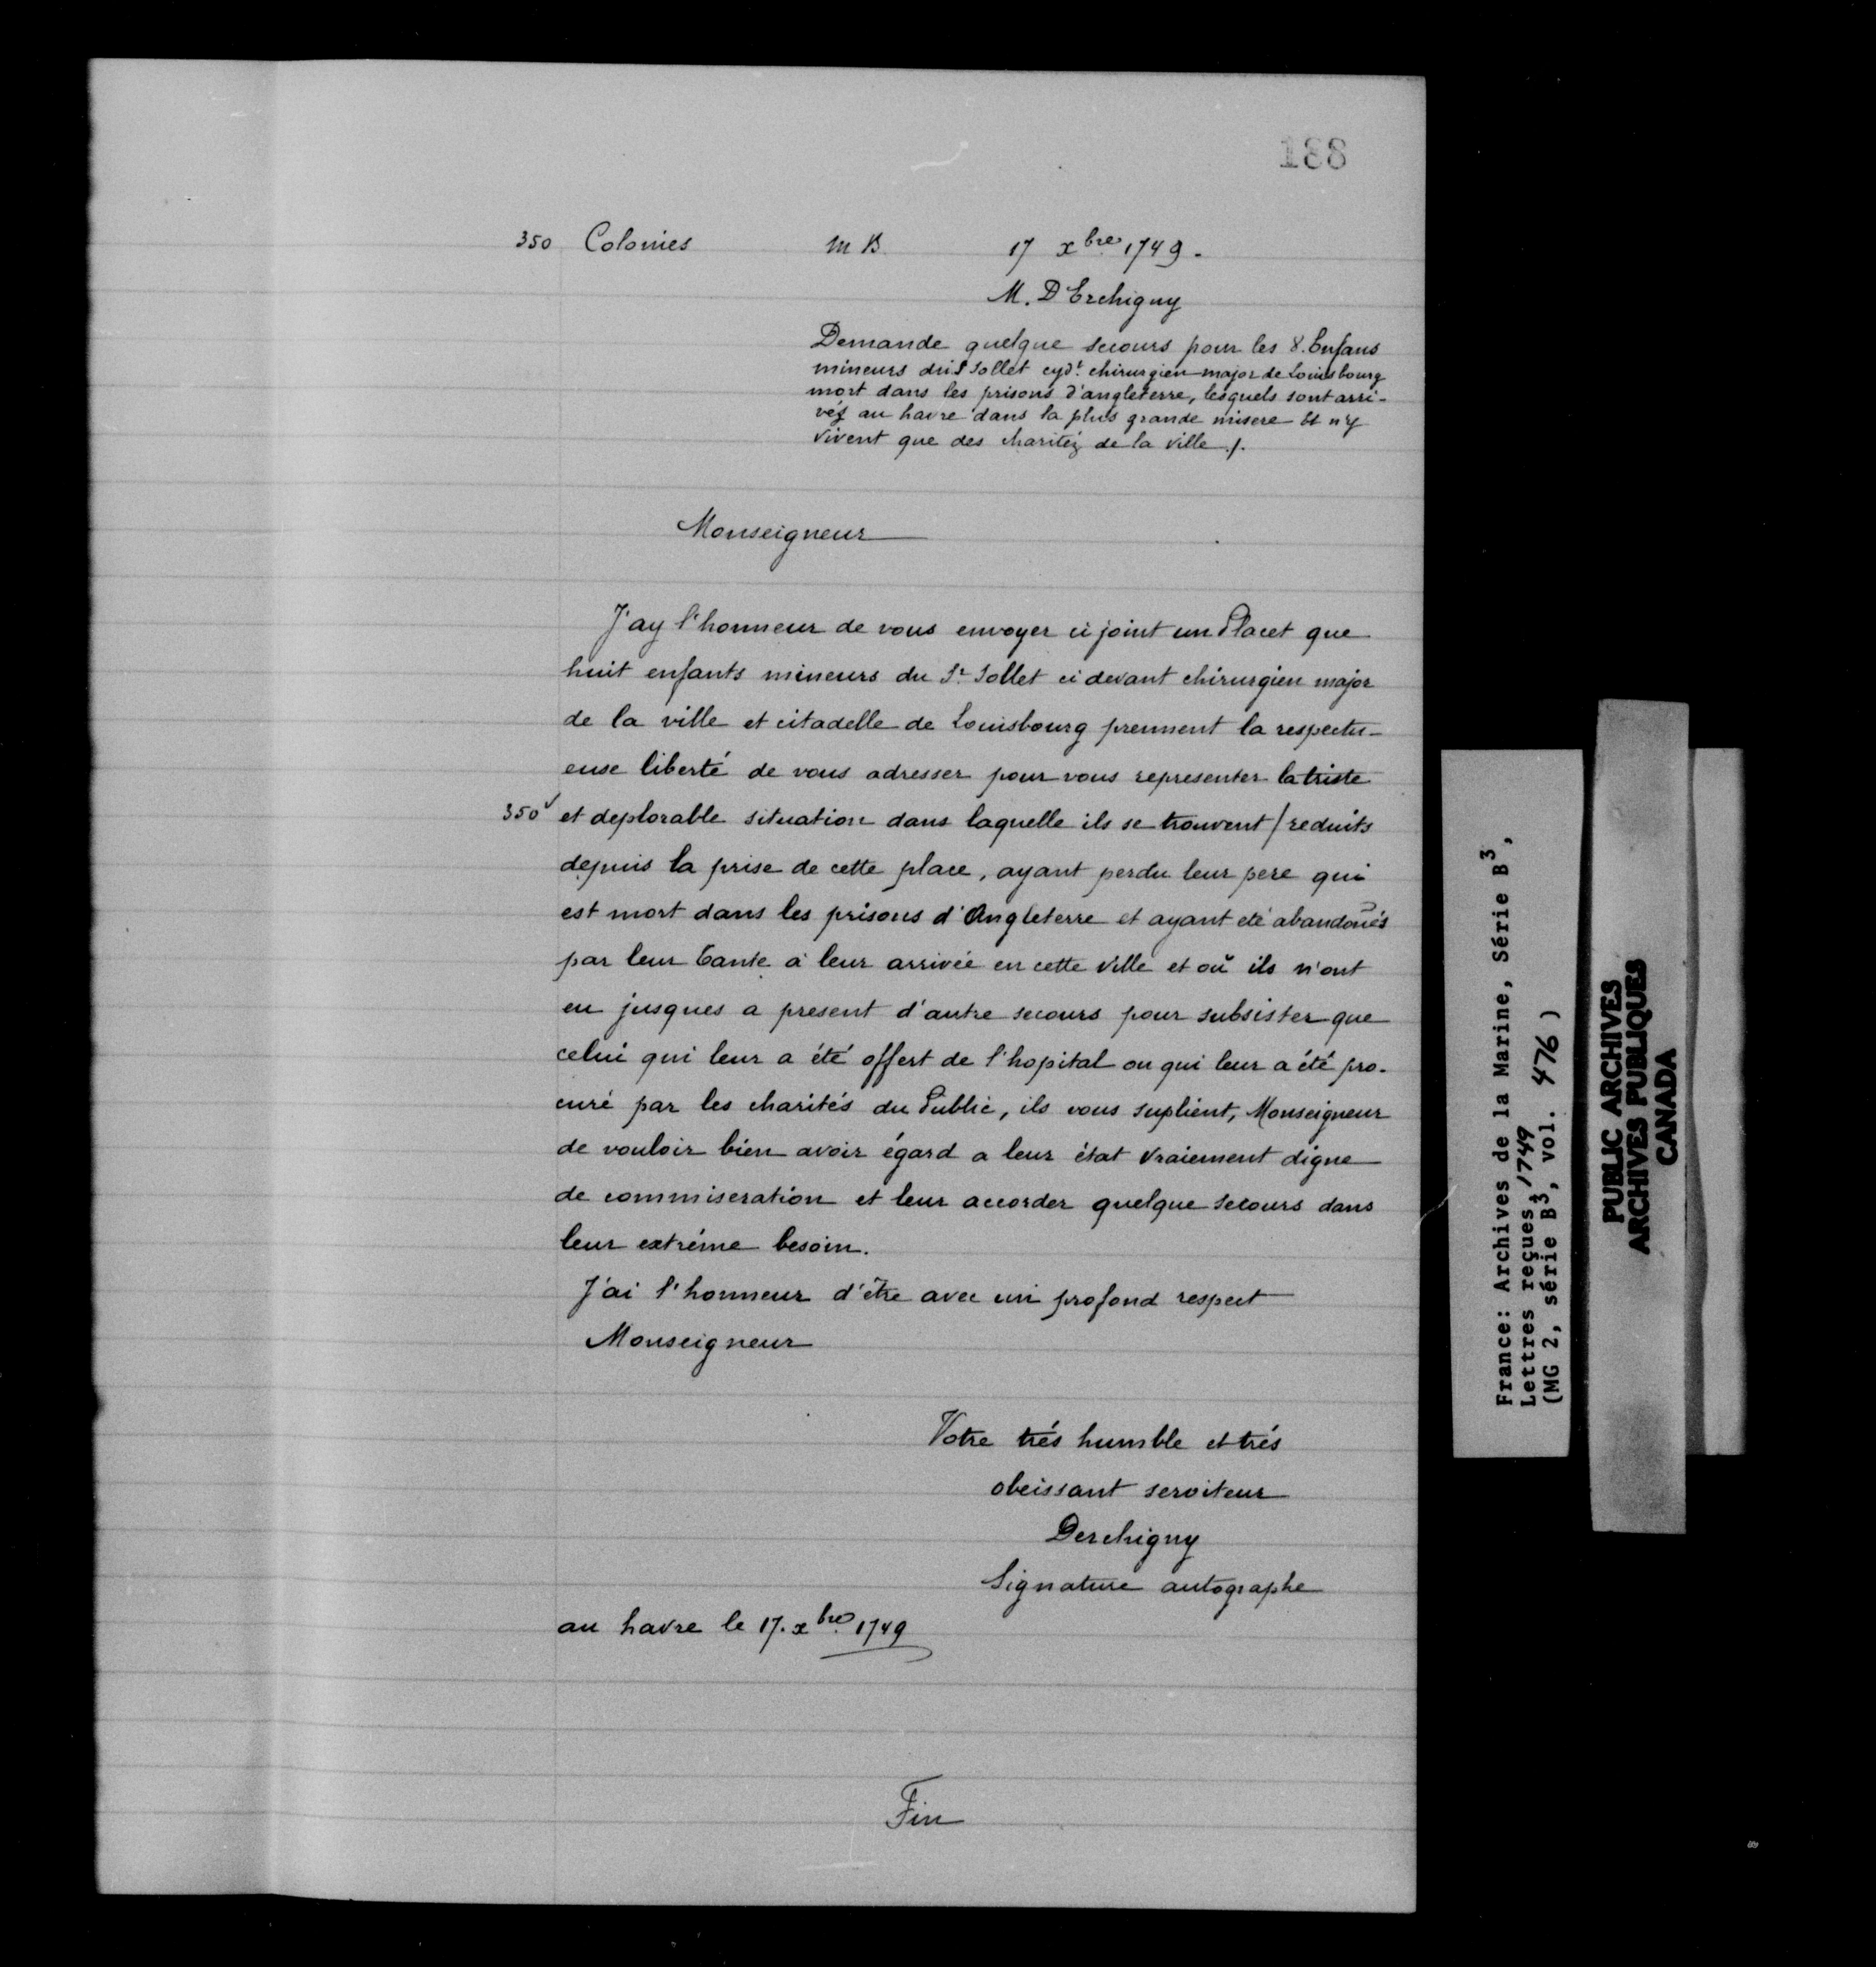 188
350 Colonies M B 17 xbre 1749.
M. D'Erchigny
Demande quelque secours pour les 8. Enfans
mineurs du S Sollet cydt. chirurgien major de Louisbourg
mort dans les prisons d'angleterre, lesquels sont arri-
vés au havre dans la plus grande misere et n'y
vivent que des charitéz de la ville ./.
Monseigneur
J'ay l'honneur de vous envoyer ci joint un Placet que
huit enfants mineurs du Sr. Sollet ci devant chirurgien major
de la ville et citadelle de Louisbourg prennent la respectu-
euse liberté de vous adresser pour vous representer la triste
350v et deplorable situation dans laquelle ils se trouvent / reduits
depuis la prise de cette place, ayant perdu leur pere qui
est mort dans les prisons d'Angleterre et ayant eté abandoñés
par leur tante à leur arrivée en cette ville et où ils n'ont
eu jusques a present d'autre secours pour subsister que
celui qui leur a été offert de l'hopital ou qui leur a été pro-
curé par les charités du Public, ils vous suplient, Monseigneur
de vouloir bien avoir égard a leur état vraiement digne
de commiseration et leur accorder quelque secours dans
leur extréme besoin.
J'ai l'honneur d'être avec un profond respect
Monseigneur
Votre trés humble et trés
obeissant serviteur
Derchigny
Signature autographe
au havre le 17. xbre 1749
Fin
France: Archives de la Marine, Série B3,
Lettres reçues, 1749
(MG 2, série B3, vol. 476)
PUBLIC ARCHIVES
ARCHIVES PUBLIQUES
CANADA